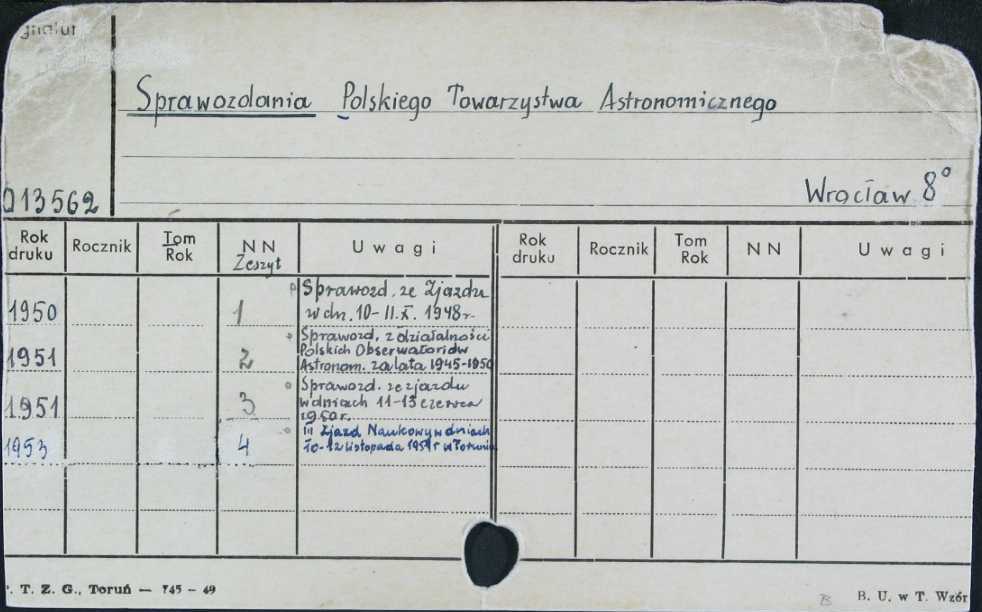 gnatur
Sprawozdania Polskiego Towarzystwa Astronomicznego
013562
Wrocław 8°
Rok druku Rocznik Tom Rok NN Zeszyt Uwagi Rok druku Rocznik Tom Rok NN Uwagi
1950 1 Sprawozd. ze Zjazdu
w dn. 10-11.X. 1948 r.
1951 2 Sprawozd. z działalności
Polskich Obserwatoriów
Astronom. za lata 1945-1950
1951 3 Sprawozd. ze zjazdu
w dniach 11-13 czerwca
1950 r.
1953 4 III Zjazd Naukowy w dniach
10-12 listopada 1951 r w Toruniu
. T. Z. G., Toruń — 745 - 49
B. U. w T. Wzór